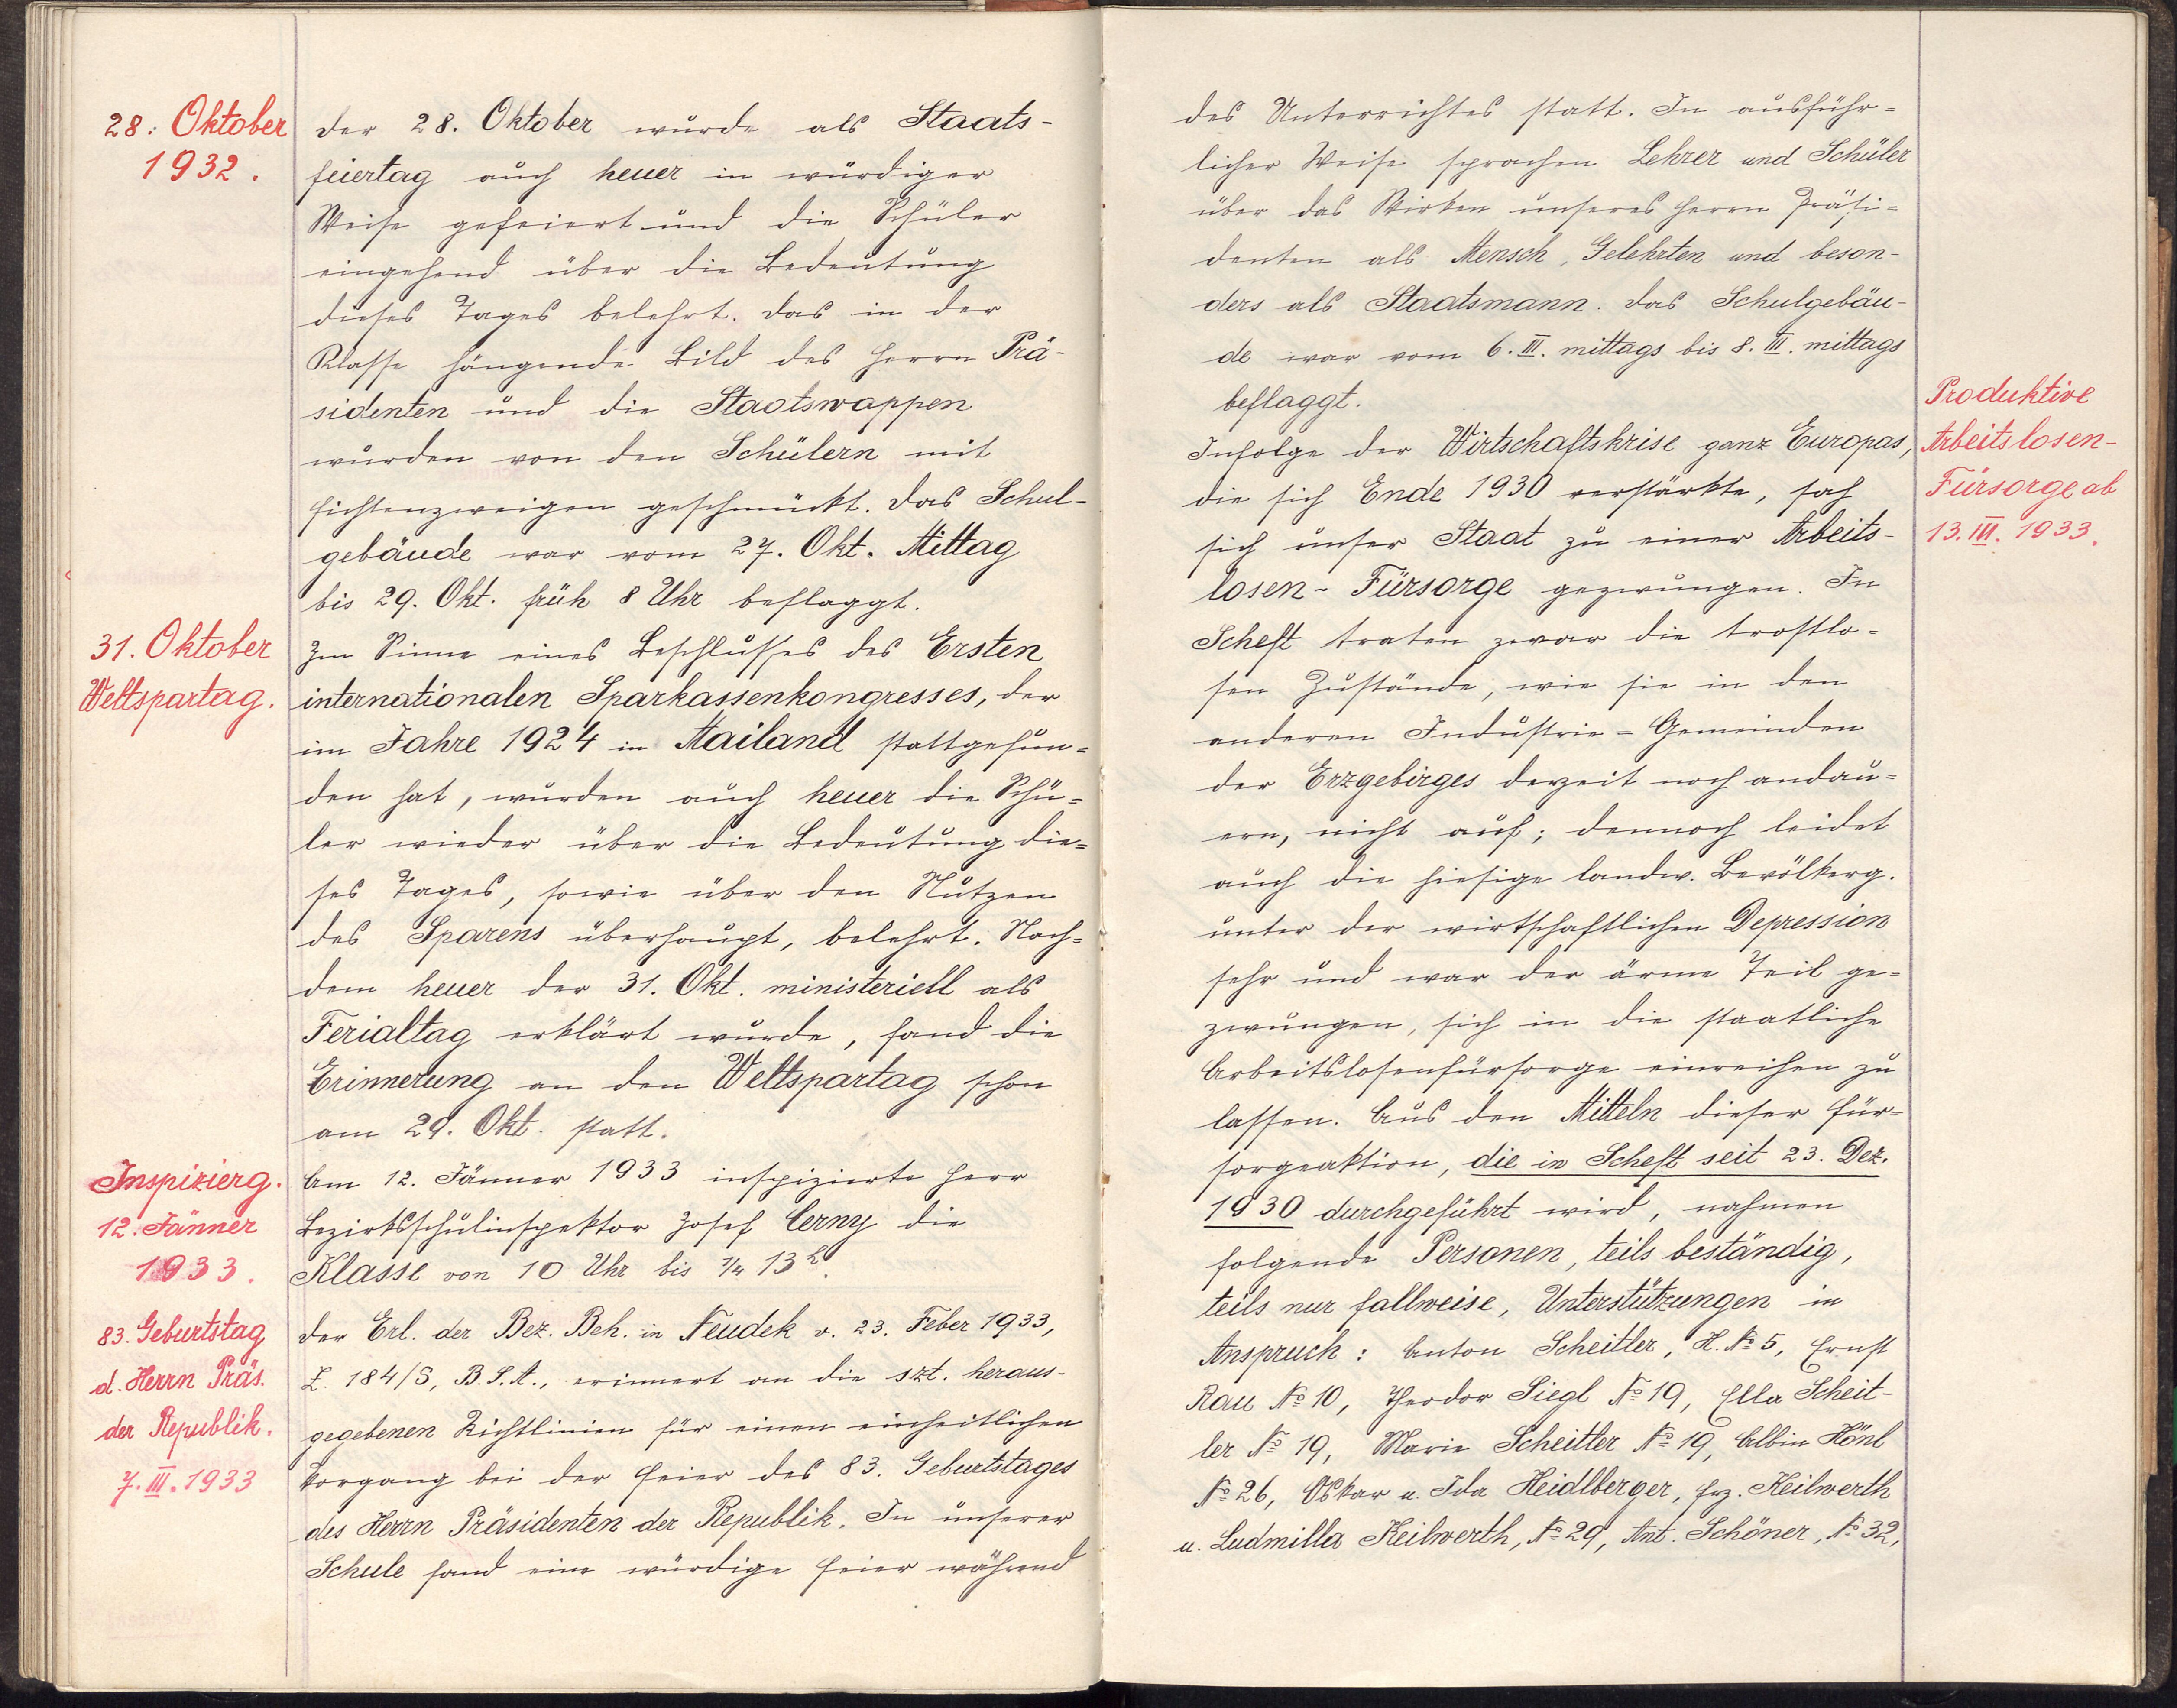 28. Oktober
1932.
Der 28. Oktober wurde als Staats-
feiertag auch heuer in würdiger
Weise gefeiert und die Schüler
eingehend über die Bedeutung
dieses Tages belehrt. Das in der
Klasse hängende Bild des Herrn Prä-
sidenten und die Staatswappen
wurden von den Schülern mit
Fichtenzweigen geschmückt. Das Schul-
gebäude war vom 27. Okt. Mittag
bis 29. Okt. früh 8 Uhr beflaggt.
31. Oktober
Weltspartag.
Im Sinne eines Beschlusses des Ersten
internationalen Sparkassenkongresses, der
im Jahre 1924 in Mailand stattgefun=
den hat, wurden auch heuer die Schü=
ler wieder über die Bedeutung die=
ses Tages, sowie über den Nutzen
des Sparens überhaupt, belehrt. Nach=
dem heuer der 31. Okt. ministeriell als
Ferialtag erklärt wurde, fand die
Erinnerung an den Weltspartag schon
am 29. Okt. statt.
Inspizierg.
12. Jänner
1933.
Am 12. Jänner 1933 inspizierte Herr
Bezirksschulinspektor Josef Cerny die
Klasse von 10 Uhr bis 3/4 13 h.
83. Geburtstag
d. Herrn Präs.
der Republik.
7. III. 1933
Der Erl. der Bez. Beh. in Neudek v. 23. Feber 1933,
Z. 184/S, B.S.A., erinnert an die szt. heraus-
gegebenen Richtlinien für einen einheitlichen
Vorgang bei der Feier des 83. Geburtstages
des Herrn Präsidenten der Republik. In unserer
Schule fand eine würdige Feier während
des Unterrichtes statt. In ausführ=
licher Weise sprachen Lehrer und Schüler
über das Wirken unseres Herrn Präsi=
denten als Mensch, Gelehrten und beson-
ders als Staatsmann. Das Schulgebäu-
de war vom 6. III. mittags bis 8. III. mittags
beflaggt.
Produktive
Arbeitslosen-
Fürsorge ab
13. III. 1933.
Infolge der Wirtschaftskrise ganz Europas,
die sich Ende 1930 verstärkte, sah
sich unser Staat zu einer Arbeits-
losen-Fürsorge gezwungen. In
Scheft traten zwar die trostlo=
sen Zustände, wie sie in den
anderen Industrie=Gemeinden
der Erzgebirges derzeit noch andau=
ern, nicht auf; dennoch leidet
auch die hiesige landw. Bevölkerg.
unter der wirtschaftlichen Depression
sehr und war der ärme Teil ge=
zwungen, sich in die staatliche
Arbeitslosenfürsorge einreihen zu
lassen. Aus den Mitteln dieser Für=
sorgeaktion, die in Scheft seit 23. Dez.
1930 durchgeführt wird, nahmen
folgende Personen, teils beständig,
teils nur fallweise, Unterstützungen in
Anspruch: Anton Scheitler, H. № 5, Ernst
Rau № 10, Theodor Siegl № 19, Ella Scheit-
ler № 19, Marie Scheitler № 19, Albin Hönl
№ 26, Oskar u. Ida Heidlberger, Frz. Keilwerth
u. Ludmilla Keilwerth, № 29, Ant. Schöner, № 32,